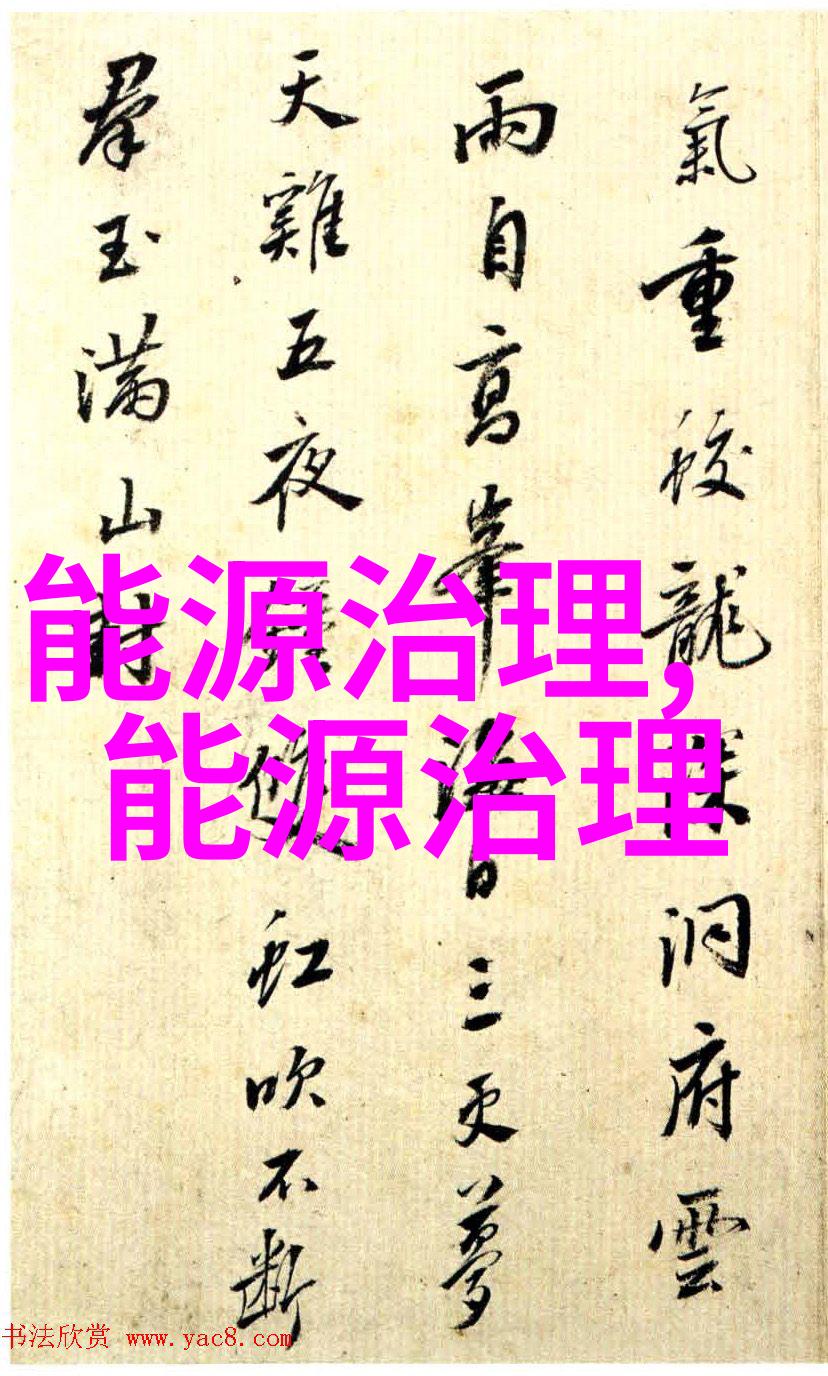 氣重蛟龍深洞府雲
雨自高峯海日三更夢
天雞五夜虹吹不斷
羣玉滿山
能源治理,
能源治理
书法欣赏 www.yac8.com